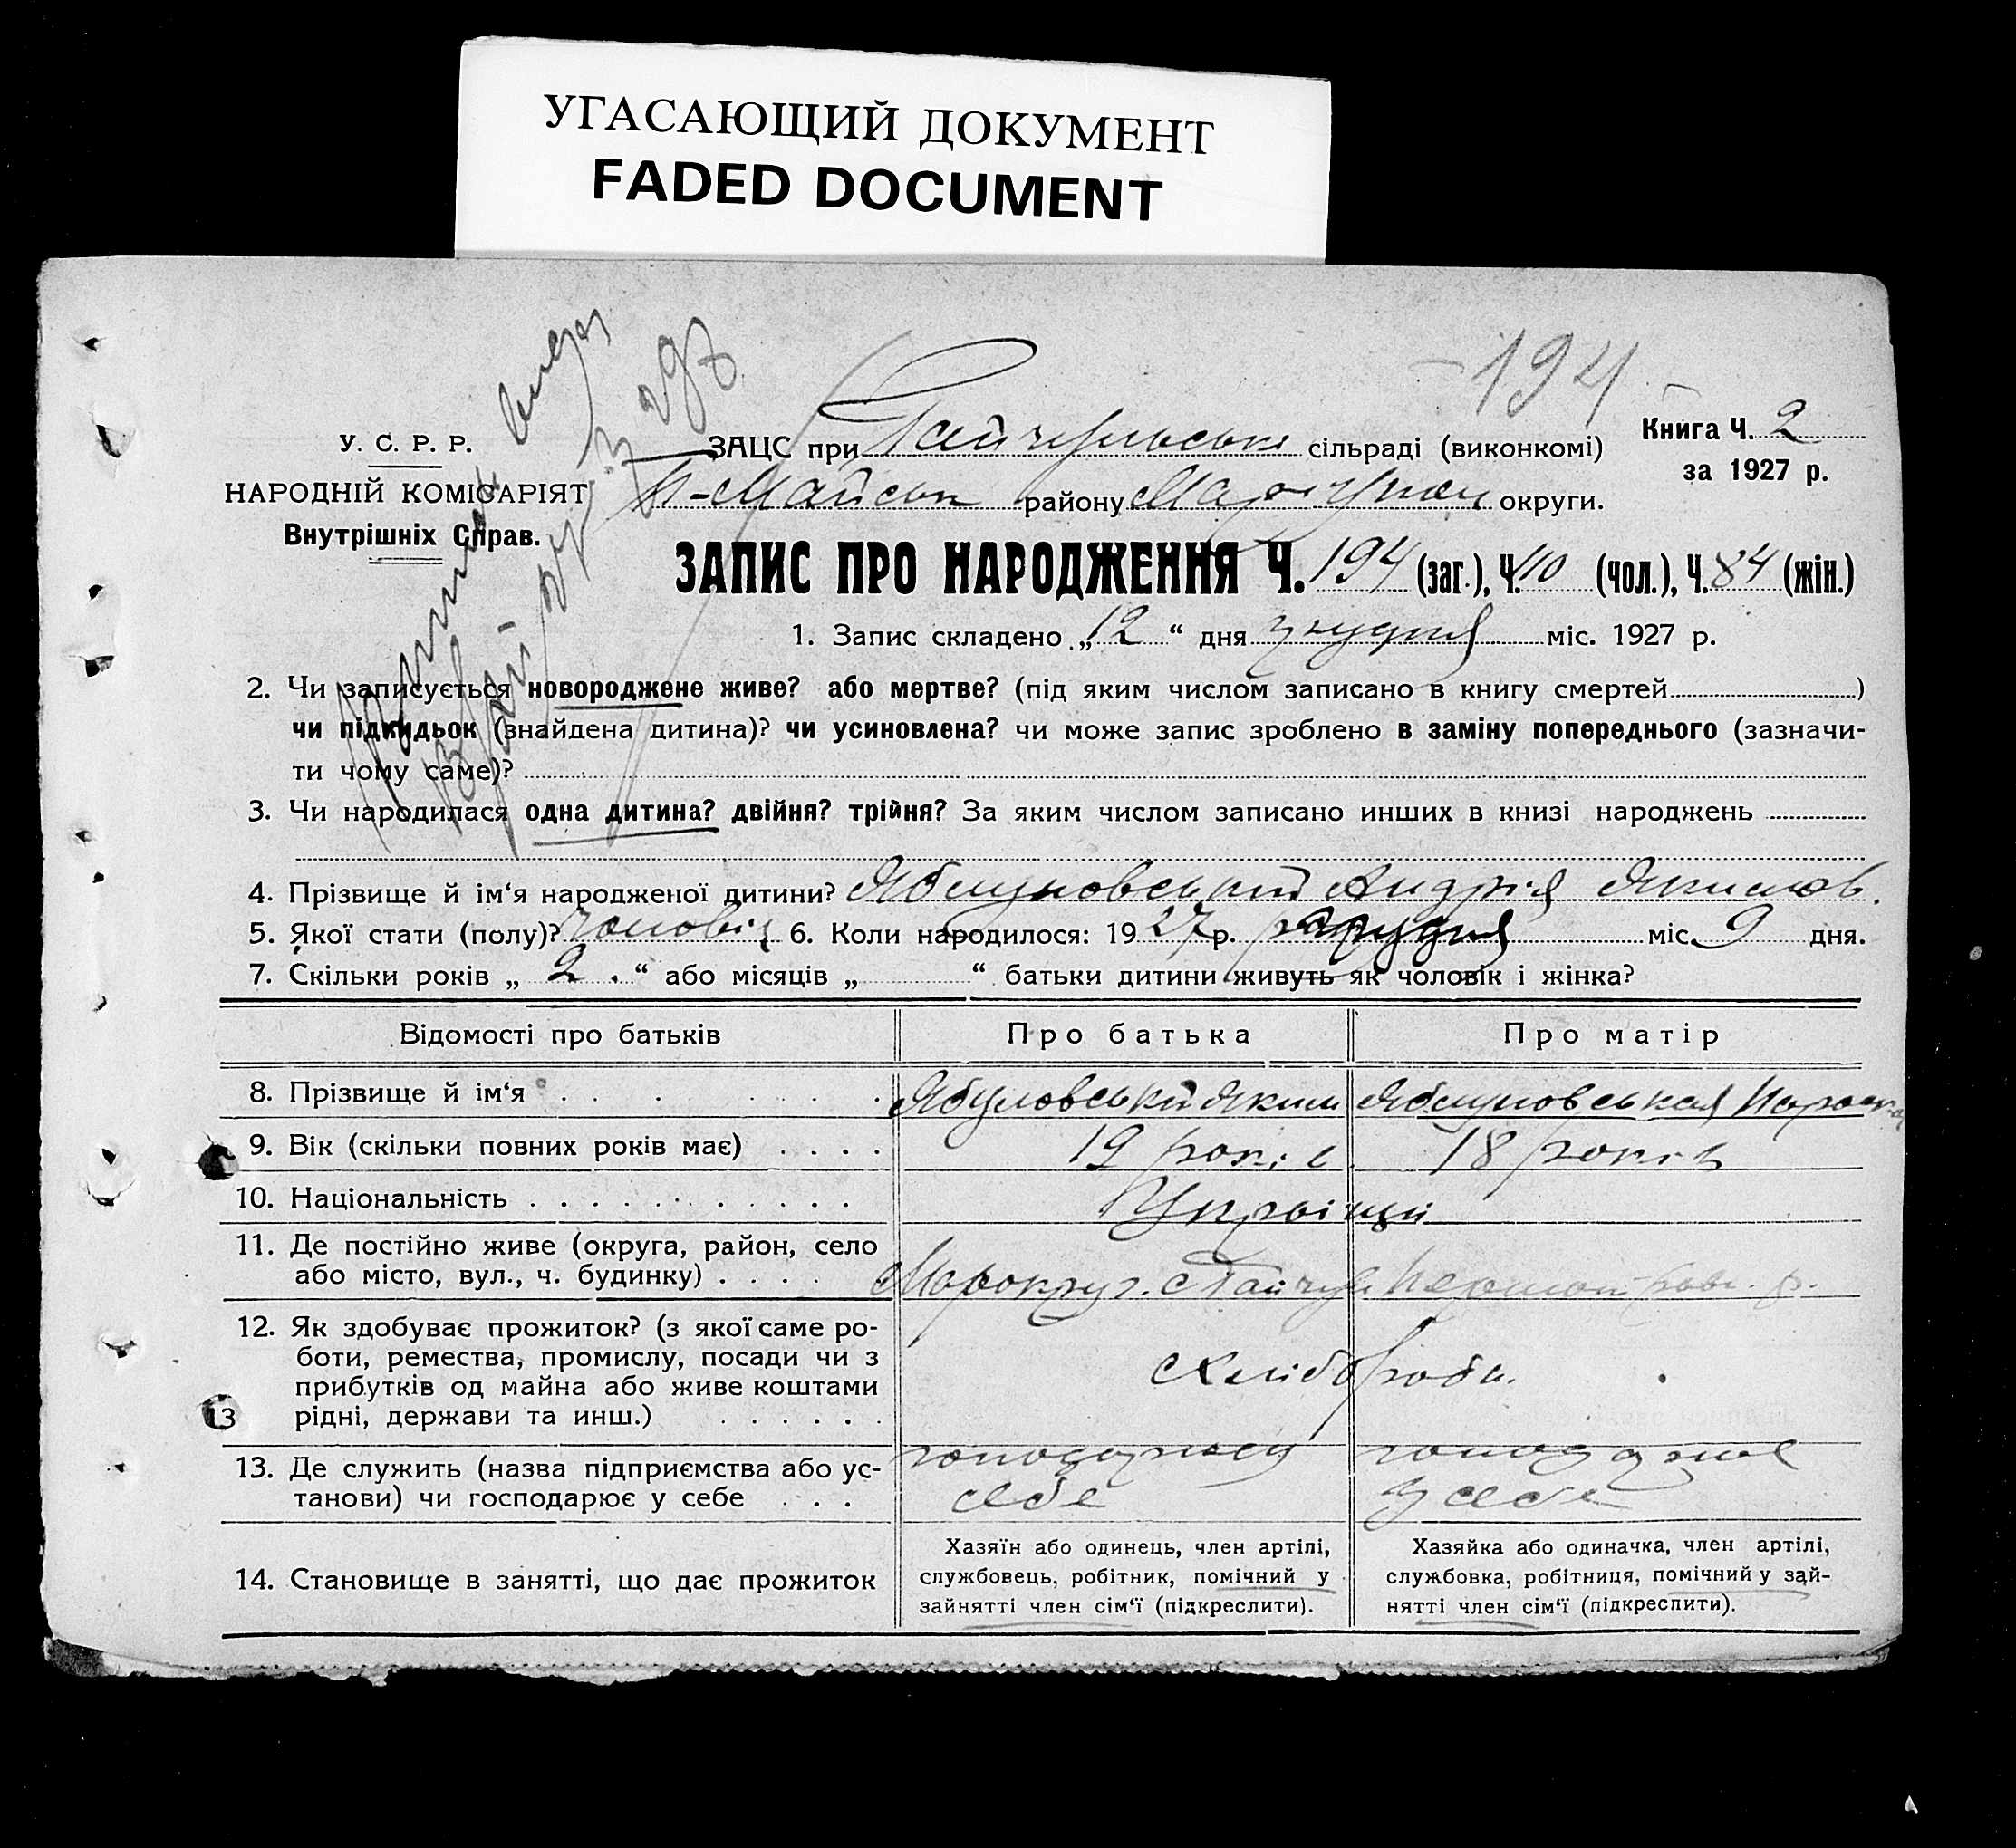 УГАСАЮЩИЙ ДОКУМЕНТ
FADED DOCUMENT
194
У. С. Р. Р.
НАРОДНІЙ КОМІСАРІЯТ
Внутрішніх Справ.
ЗАЦС при Гайчульські сільраді (виконкомі)
Книга Ч. 2
за 1927 р.
П-Майськ району Маріупол округи.
ЗАПИС ПРО НАРОДЖЕННЯ Ч. 194 (заг.), Ч. 110 (чол.), Ч. 84 (жін.)
1. Запис складено „12“ дня грудня міс. 1927 р.
2. Чи записується новороджене живе? або мертве? (під яким числом записано в книгу смертей )
чи підкидьок (знайдена дитина)? чи усиновлена? чи може запис зроблено в заміну попереднього (зазначи-
ти чому саме)?
3. Чи народилася одна дитина? двійня? трійня? За яким числом записано инших в книзі народжень
4. Прізвище й ім‘я народженої дитини? Яблуновський Андрій Якимов.
5. Якої стати (полу)? чоловіч 6. Коли народилося: 1927 р. грудня міс. 9 дня.
7. Скільки років „ 2 “ або місяців „ “ батьки дитини живуть як чоловік і жінка?
Відомості про батьків
Про батька
Про матір
8. Прізвище й ім‘я
Ябуловський Яким
Яблуновськая Параска
9. Вік (скільки повних років має)
19 років
18 років
10. Національність
Українці
11. Де постійно живе (округа, район, село
або місто, вул., ч. будинку)
Марокруг. с Гайчул Першотравн. р.
12. Як здобуває прожиток? (з якої саме ро-
боти, ремества, промислу, посади чи з
прибутків од майна або живе коштами
рідні, держави та инш.)
Хлібороби.
13
13. Де служить (назва підприємства або ус-
танови) чи господарює у себе
себе
у себе
14. Становище в занятті, що дає прожиток
Хазяїн або одинець, член артілі,
службовець, робітник, помічний у
зайнятті член сім‘ї (підкреслити).
Хазяйка або одиначка, член артілі,
службовка, робітниця, помічний у зай-
нятті член сім‘ї (підкреслити).